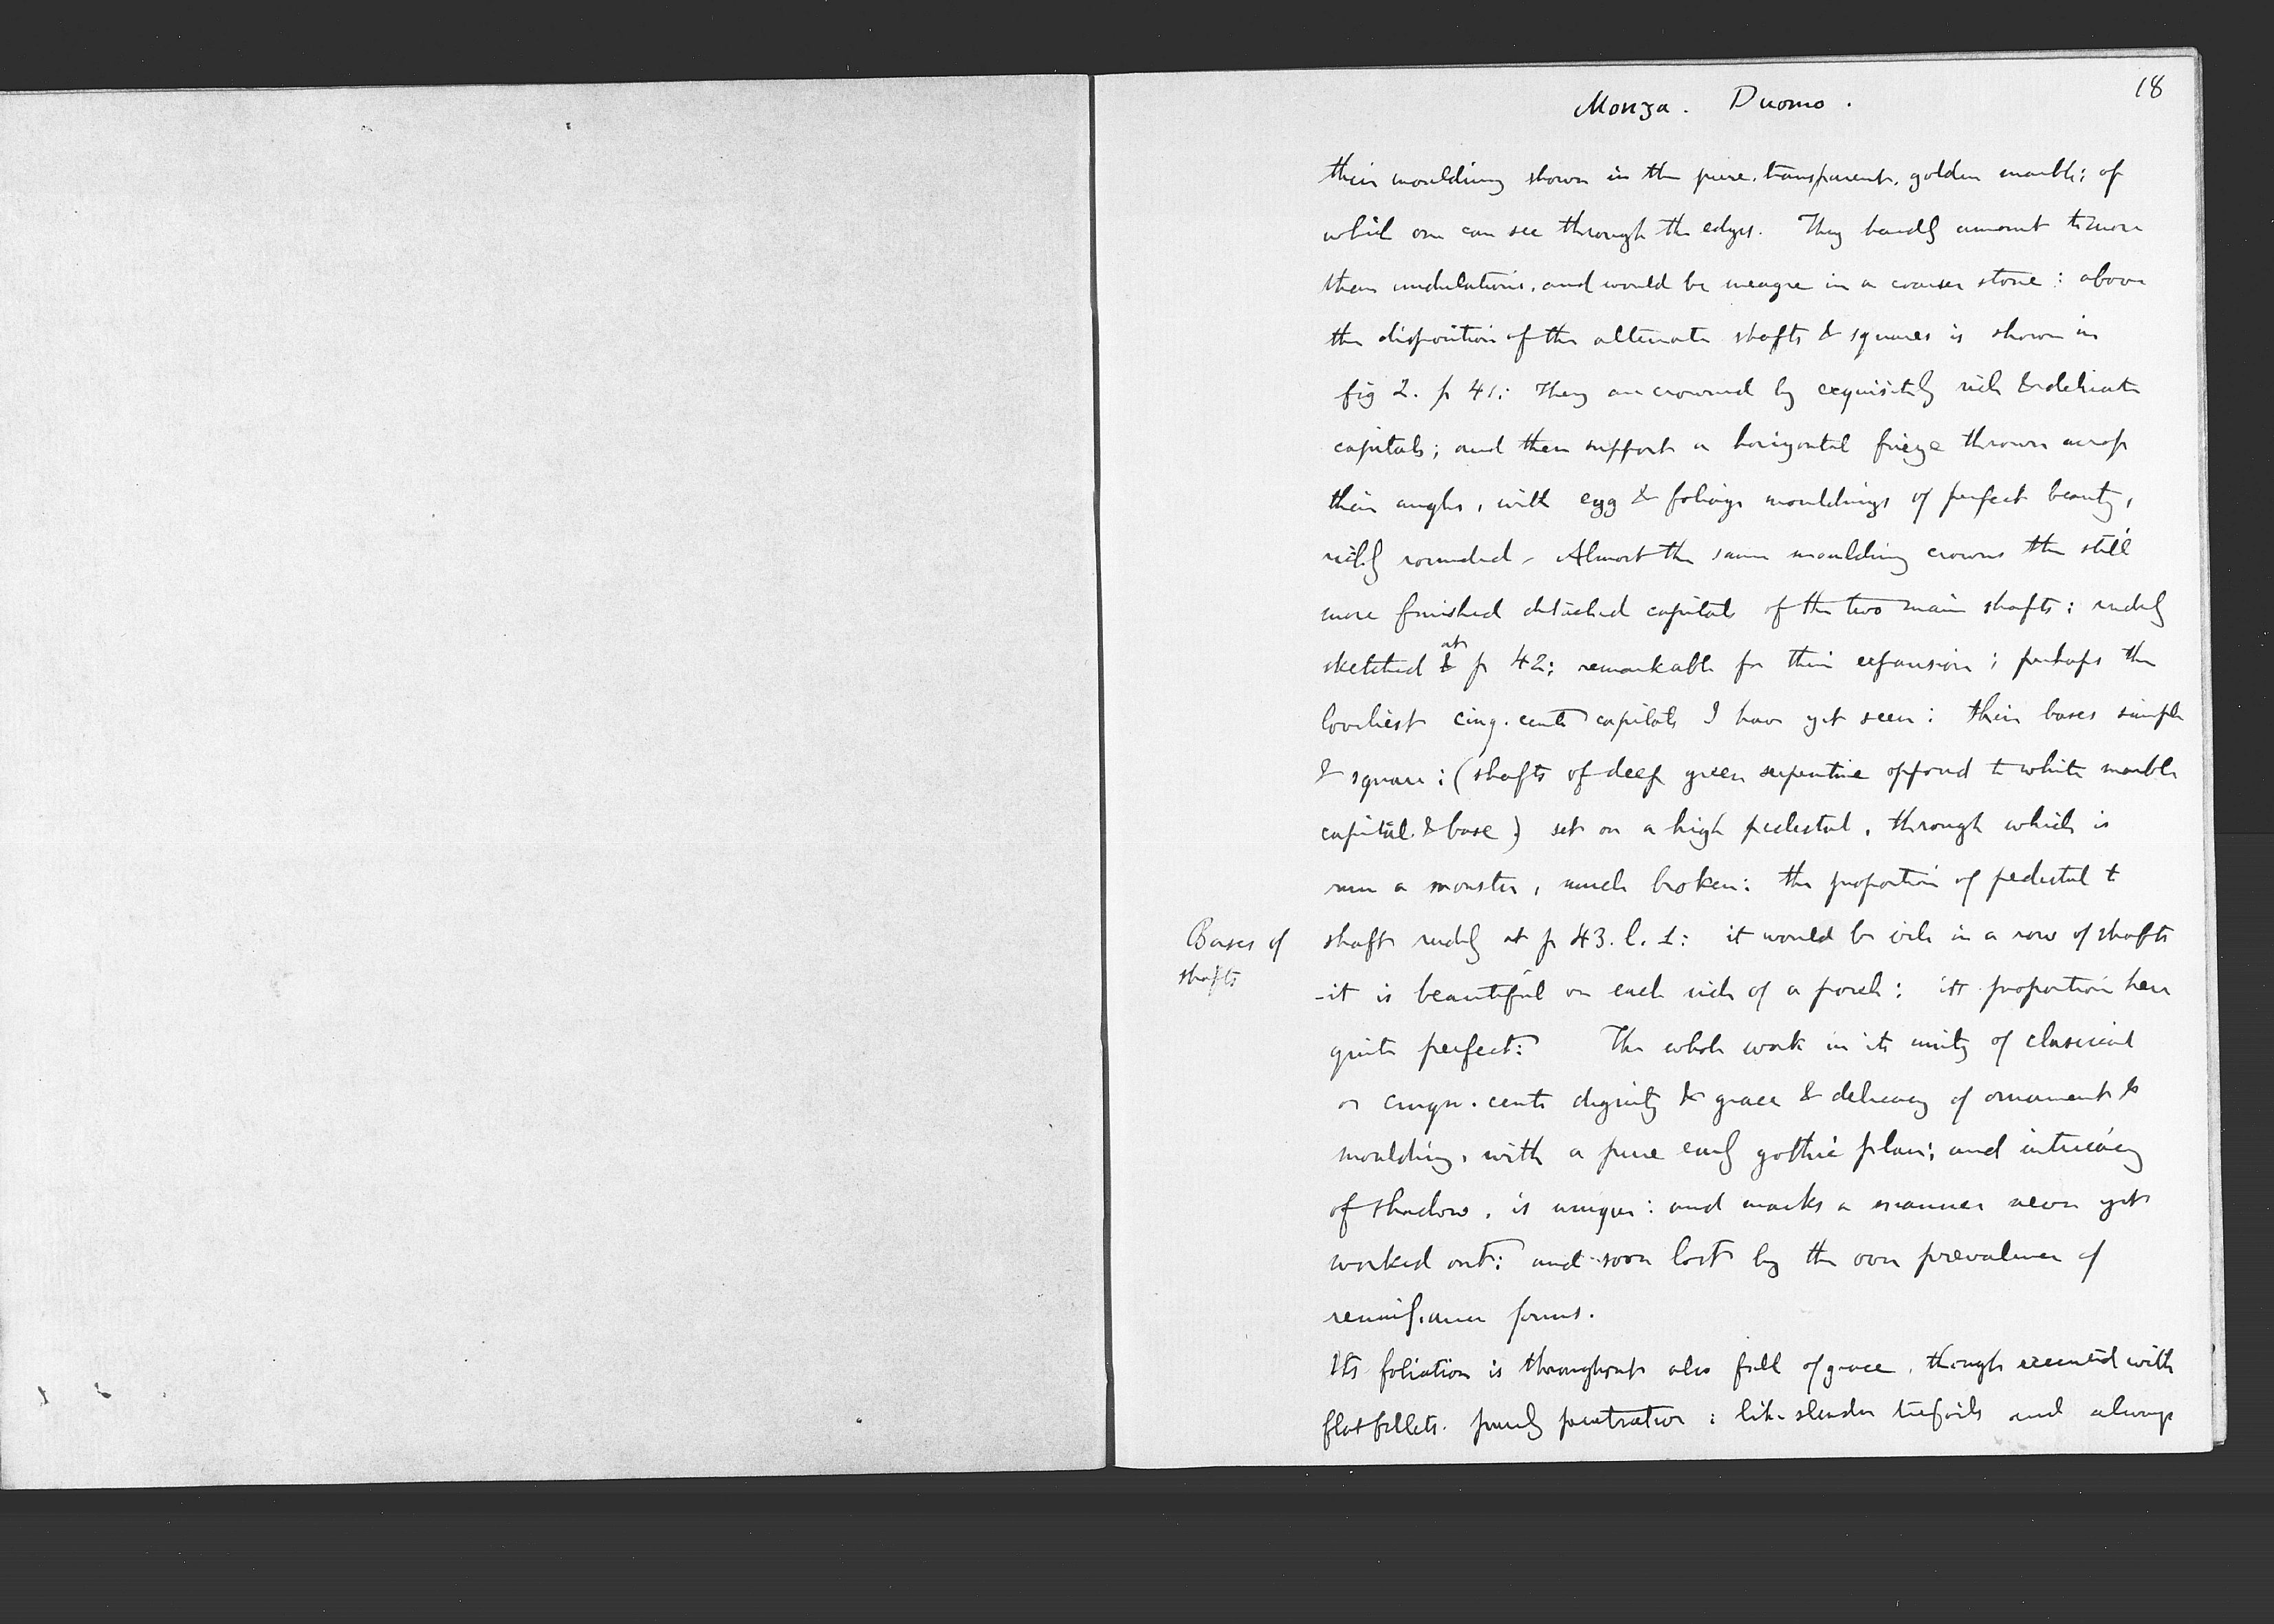 18
Monza. Duomo.
their moulding shown in the pure, transparent, golden marble; of
which one can see through the edges. They hardly amount to more
than undulations, and would be meagre in a coarser stone: above
the disposition of the alternate shafts & squares is shown in
fig 2. p 41: They are crowned by exquisitely rich & delicate
capitals; and then support a horizontal frieze thrown across
their angles, with egg & foliage mouldings of perfect beauty,
richly rounded - Almost the same moulding crowns the still
more finished detached capitals of the two main shafts: rudely
sketched at p 42; remarkable for their expansion; perhaps the
loveliest cinq. cento capitals I have yet seen: their bases simple
& square: (shafts of deep green serpentine opposed to white marble
capital & base) set on a high pedestal, through which is
run a monster, much broken: the proportion of pedestal to
Bases of
shafts
shaft rudely at p 43. l. 1: it would be vile in a row of shafts
-it is beautiful on each side of a porch: its proportion here
quite perfect: The whole work in its unity of classical
or cinque. cento dignity & grace & delicacy of ornament &
moulding, with a pure early gothic plan; and intricacy
of shadow, is unique: and marks a manner never yet
worked out: and soon lost by the over prevalence of
renaissance forms.
Its foliation is throughout also full of grace, though executed with
flat fillets. purely penetrative: like slender trefoils and always